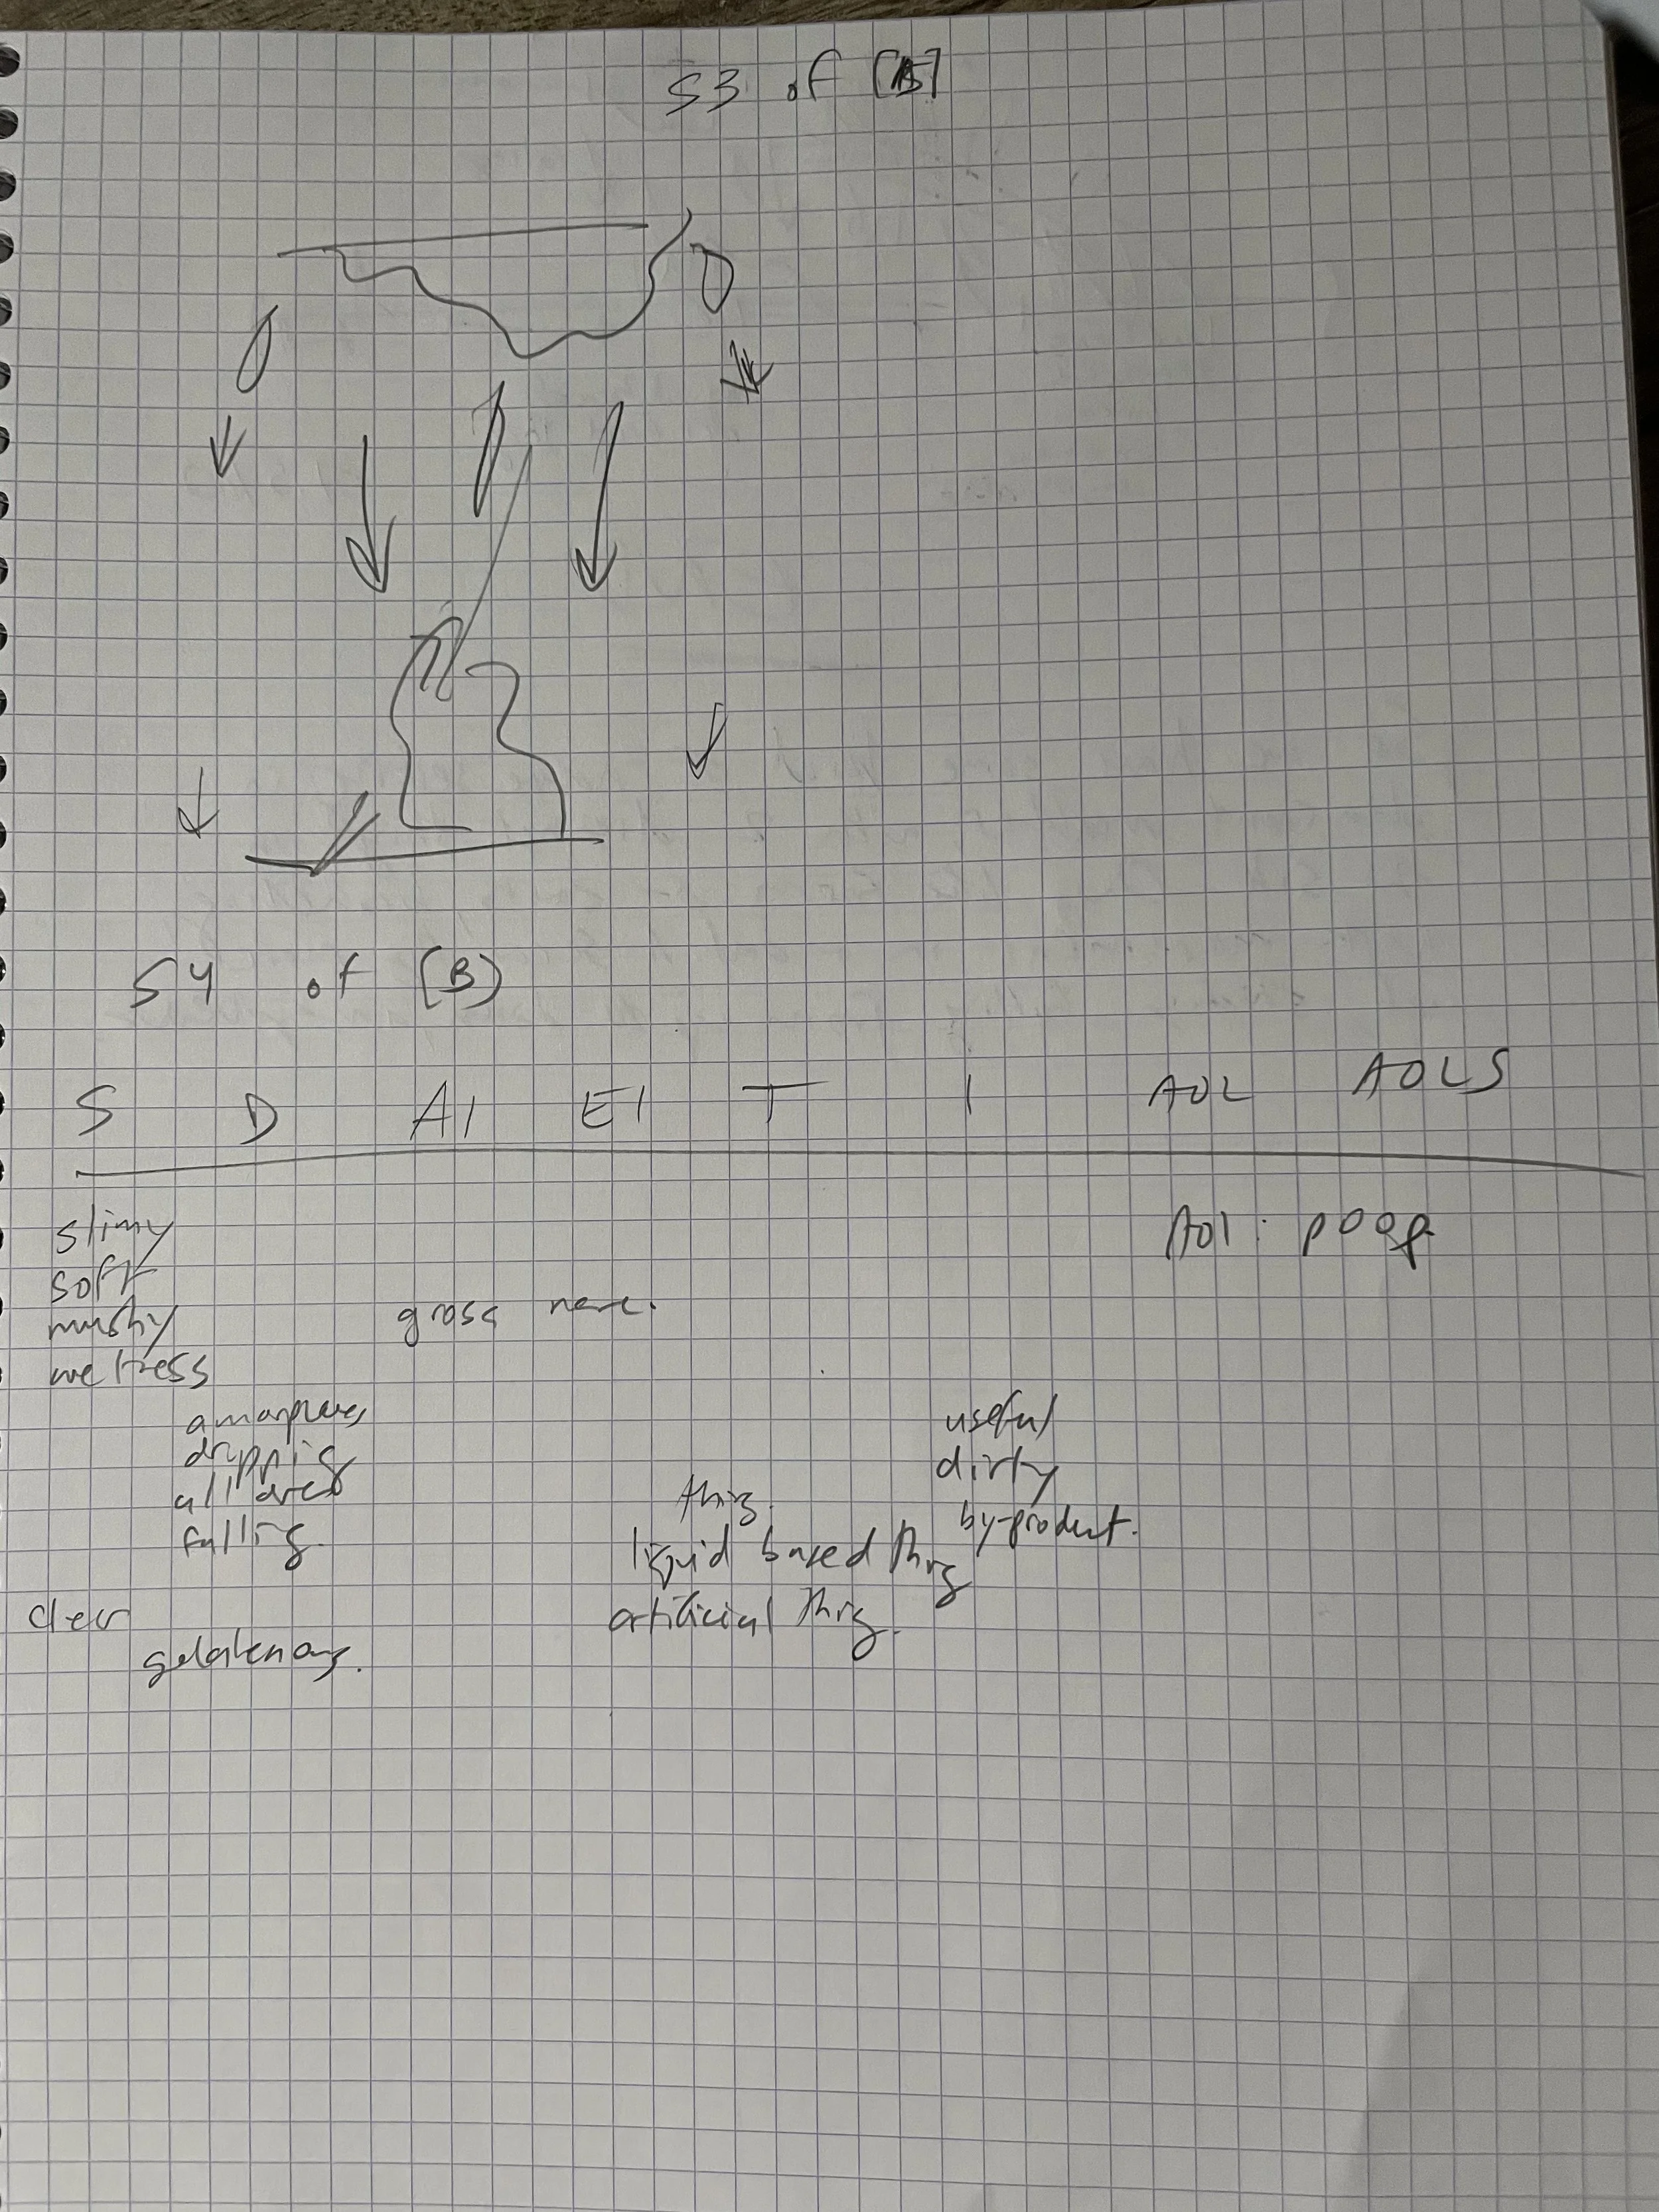 S3 of [B]
S4 of [B]
S D AI EI T I AOL AOLS
slimy
AOL: poop
soft
mushy gross
wetness
amorphous
useful
dripping
dirty
all over
thing.
falling.
by-product.
liquid based thing
clear
artificial thing.
gelatenous.